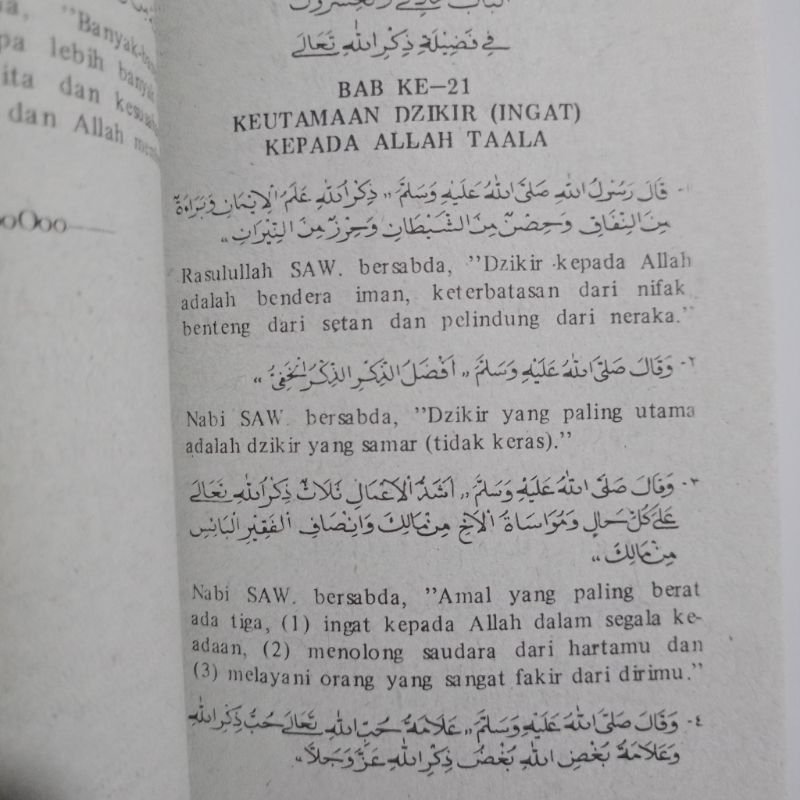 a, "Banyak-
pa lebih banyak
ita dan
dan Allah
oOoo
الباب الحادي والعشرون
في فضيلة ذكر الله تعالى
BAB KE—21
KEUTAMAAN DZIKIR (INGAT)
KEPADA ALLAH TAALA
١- قَالَ رَسُوْلُ اللهِ صَلَّى اللهُ عَلَيْهِ وَسَلَّمَ „ ذِكْرُ اللهِ عَلَمُ الْاِيْمَانِ وَبَرَاءَةٌ
مِنَ النِّفَاقِ وَحِصْنٌ مِنَ الشَّيْطَانِ وَحِرْزٌ مِنَ النِّيْرَانِ „
Rasulullah SAW. bersabda, "Dzikir kepada Allah
adalah bendera iman, keterbatasan dari nifak
benteng dari setan dan pelindung dari neraka."
٢- وَقَالَ صَلَّى اللهُ عَلَيْهِ وَسَلَّمَ „ اَفْضَلُ الذِّكْرِ الذِّكْرُ الْخَفِيُّ „
Nabi SAW. bersabda, "Dzikir yang paling utama
adalah dzikir yang samar (tidak keras)."
٣- وَقَالَ صَلَّى اللهُ عَلَيْهِ وَسَلَّمَ „ اَشَدُّ الْاَعْمَالِ ثَلَاثٌ ذِكْرُ اللهِ تَعَالَى
عَلَى كُلِّ حَالٍ وَمُوَاسَاةُ الْاَخِ مِنْ مَالِكَ وَاِنْصَافُ الْفَقِيْرِ الْبَائِسِ
مِنْ مَالِكَ „
Nabi SAW. bersabda, "Amal yang paling berat
ada tiga, (1) ingat kepada Allah dalam segala ke-
adaan, (2) menolong saudara dari hartamu dan
(3) melayani orang yang sangat fakir dari dirimu."
٤- وَقَالَ صَلَّى اللهُ عَلَيْهِ وَسَلَّمَ „ عَلَامَةُ حُبِّ اللهِ تَعَالَى حُبُّ ذِكْرِ اللهِ
وَعَلَامَةُ بُغْضِ اللهِ بُغْضُ ذِكْرِ اللهِ عَزَّ وَجَلَّ „